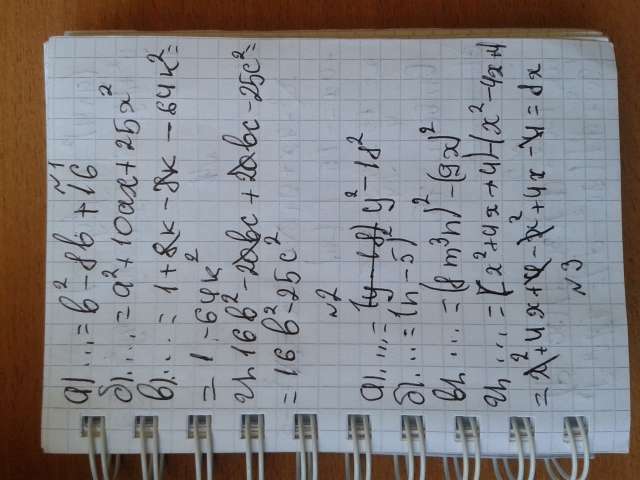 №1
а) ... = b² - 8b + 16
б) ... = a² + 10ax + 25x²
в) ... = 1 + 8k - 8k - 64k² =
= 1 - 64k²
г) 16b² - 20bc + 20bc - 25c² =
= 16b² - 25c²
№2
а) ... = y² - 18²
б) ... = (n - 5)²
в) ... = (8m³n)² - (9x)²
г) ... = (x² + 4x + 4) - (x² - 4x + 4)
= x² + 4x + 4 - x² + 4x - 4 = 8x
№3